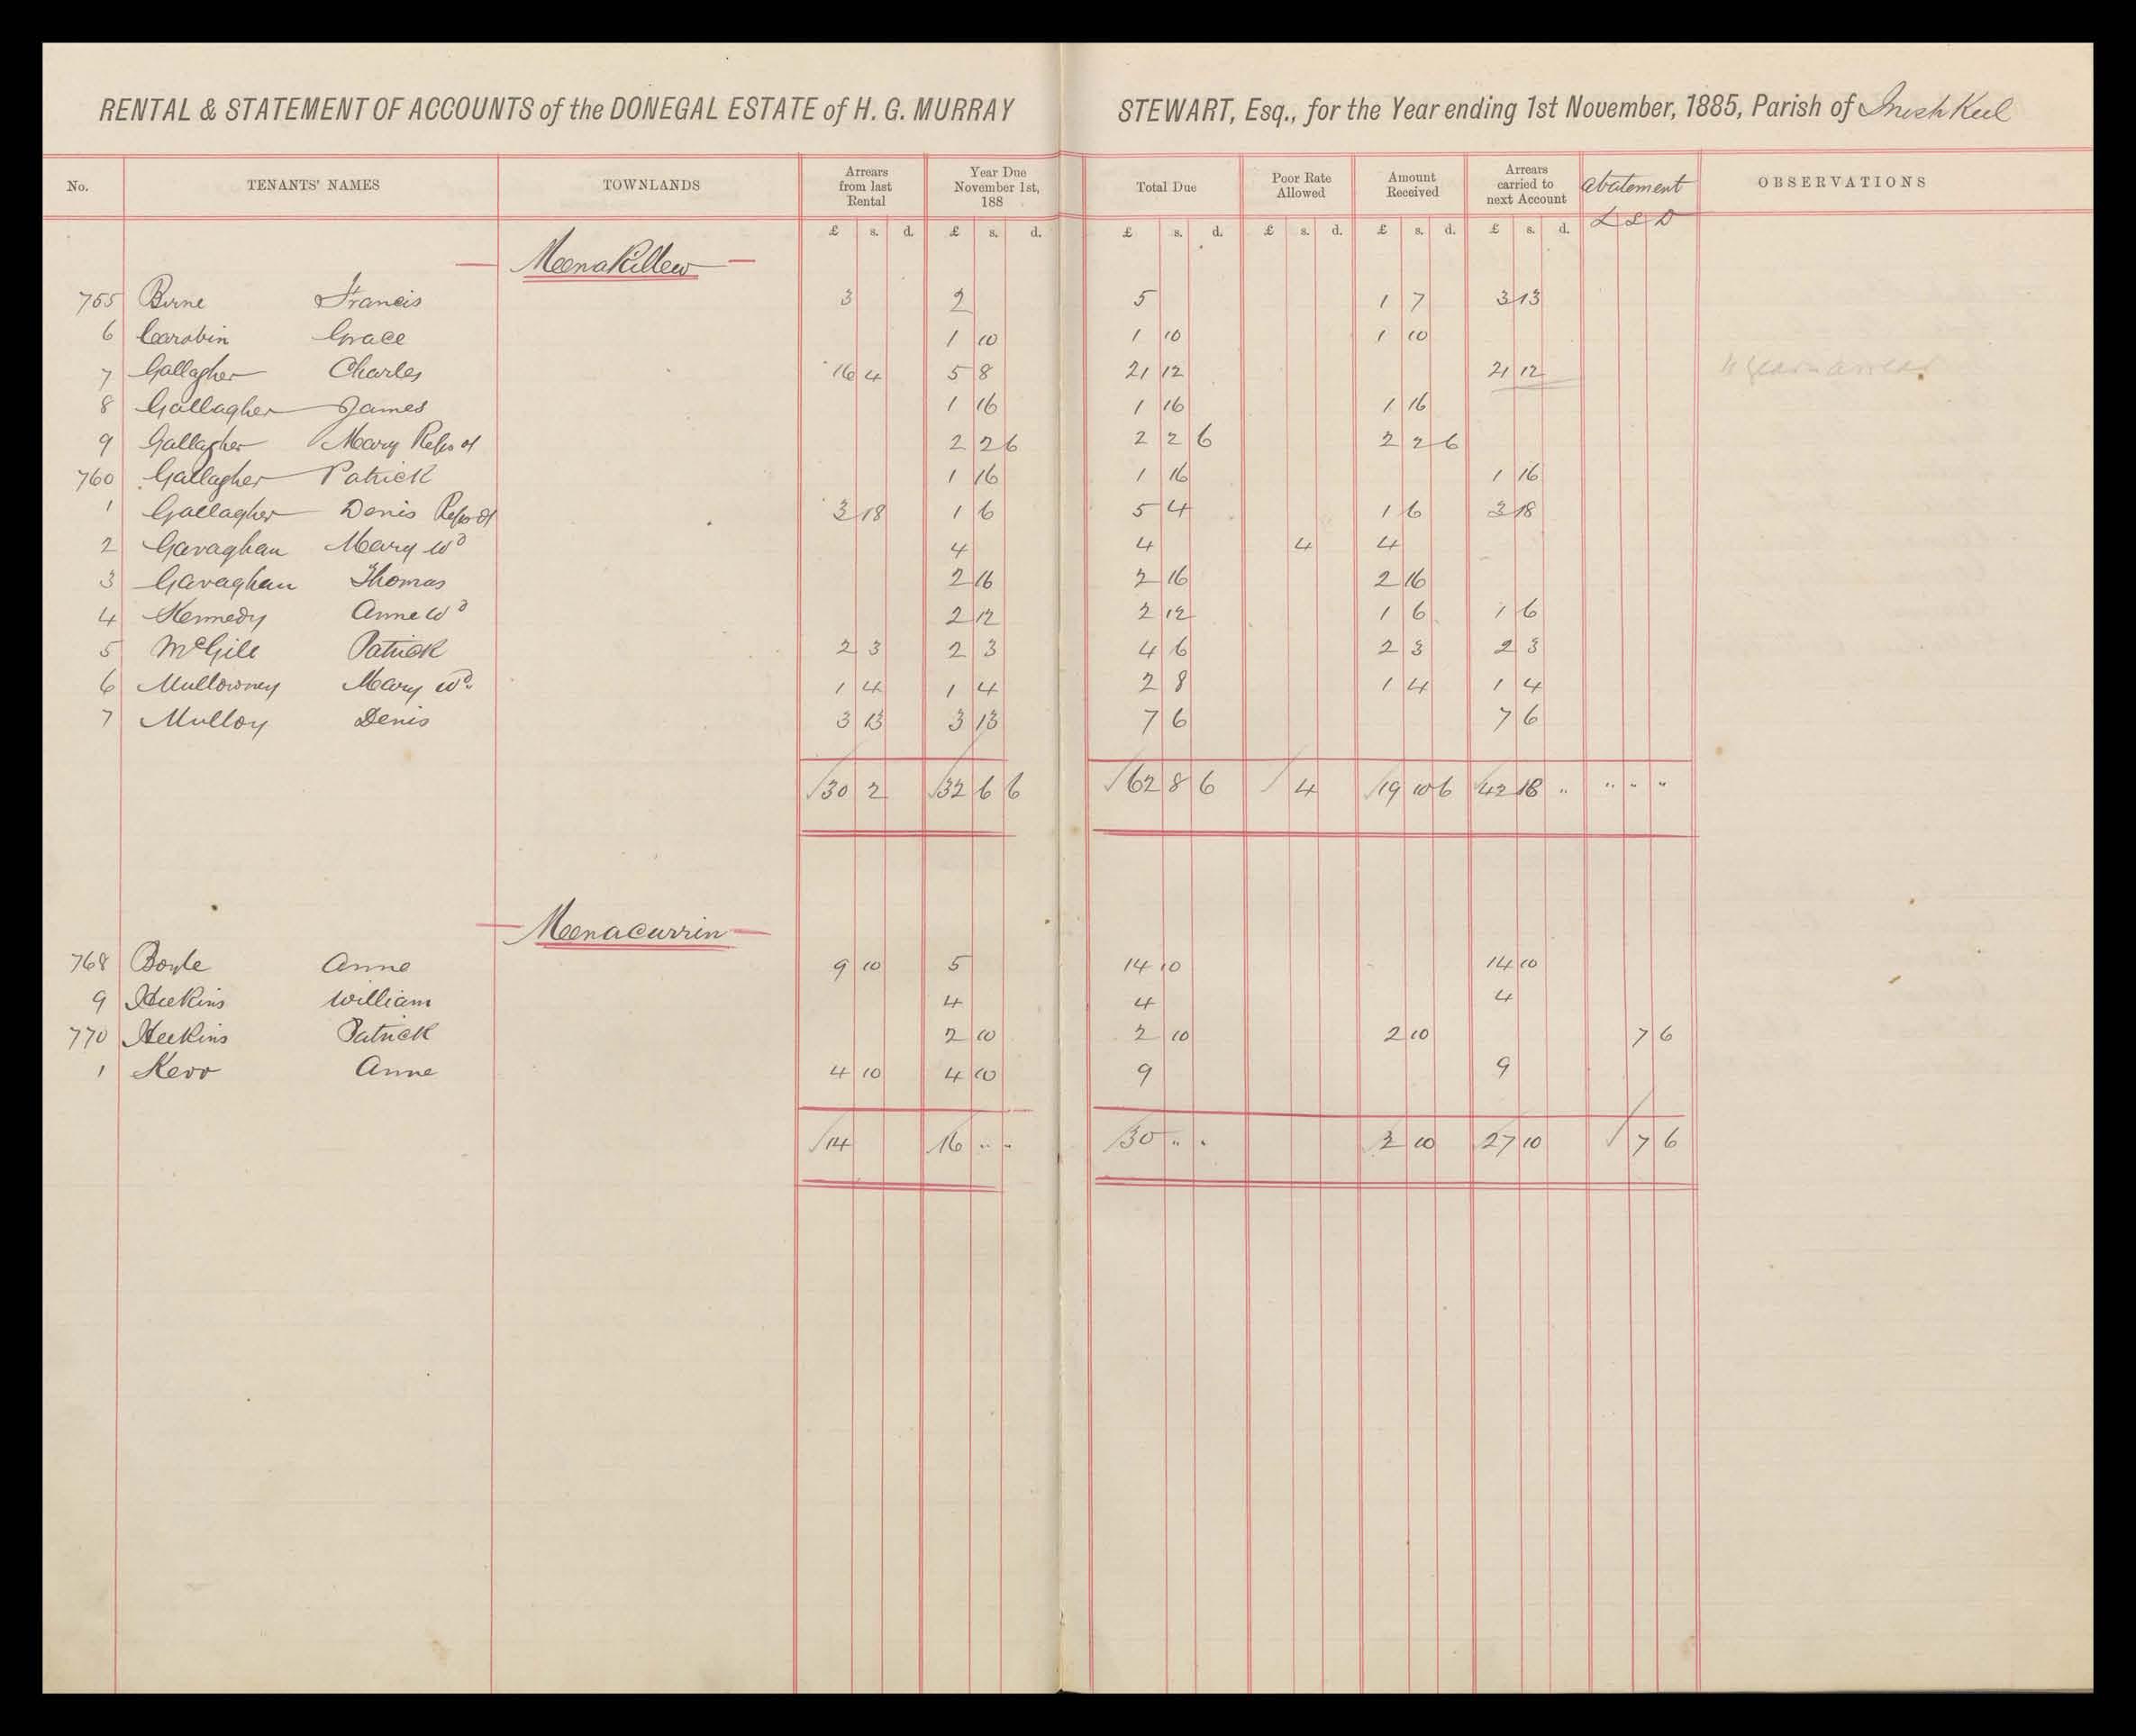 RENTAL & STATEMENT OF ACCOUNTS of the DONEGAL ESTATE of H. G. MURRAY STEWART, Esq., for the Year ending 1st November, 1885, Parish of InishKeel
No. TENANTS' NAMES TOWNLANDS Arrears from last Rental Year Due November 1st, 188 Total Due Poor Rate Allowed Amount Received Arrears carried to next Account Abatement OBSERVATIONS
£ s. d. £ s. d. £ s. d. £ s. d. £ s. d. £ s. d. £ S D
MeenaKillew
755 Birne Francis 3 2 5 1 7 3 13
6 Carabin Grace 1 10 1 10 1 10
7 Gallagher Charles 16 4 5 8 21 12 21 12
8 Gallagher James 1 16 1 16 1 16
9 Gallagher Mary Reps of 2 2 6 2 2 6 2 2 6
760 Gallagher Patrick 1 16 1 16 1 16
1 Gallagher Denis Reps of 3 18 1 6 5 4 1 6 3 18
2 Gavaghan Mary Wd 4 4 4 4
3 Gavaghan Thomas 2 16 2 16 2 16
4 Kennedy Anne Wd 2 12 2 12 1 6 1 6
5 McGill Patrick 2 3 2 3 4 6 2 3 2 3
6 Mullowney Mary Wd. 1 4 1 4 2 8 1 4 1 4
7 Mulloy Denis 3 13 3 13 7 6 7 6
30 2 32 6 6 62 8 6 4 19 10 6 42 18 " " " "
Meenacurrin
768 Boyle Anne 9 10 5 14 10 14 10
9 Heekins William 4 4 4
770 Heekins Patrick 2 10 2 10 2 10 7 6
1 Kerr Anne 4 10 4 10 9 9
14 16 " " 30 " " 2 10 27 10 7 6